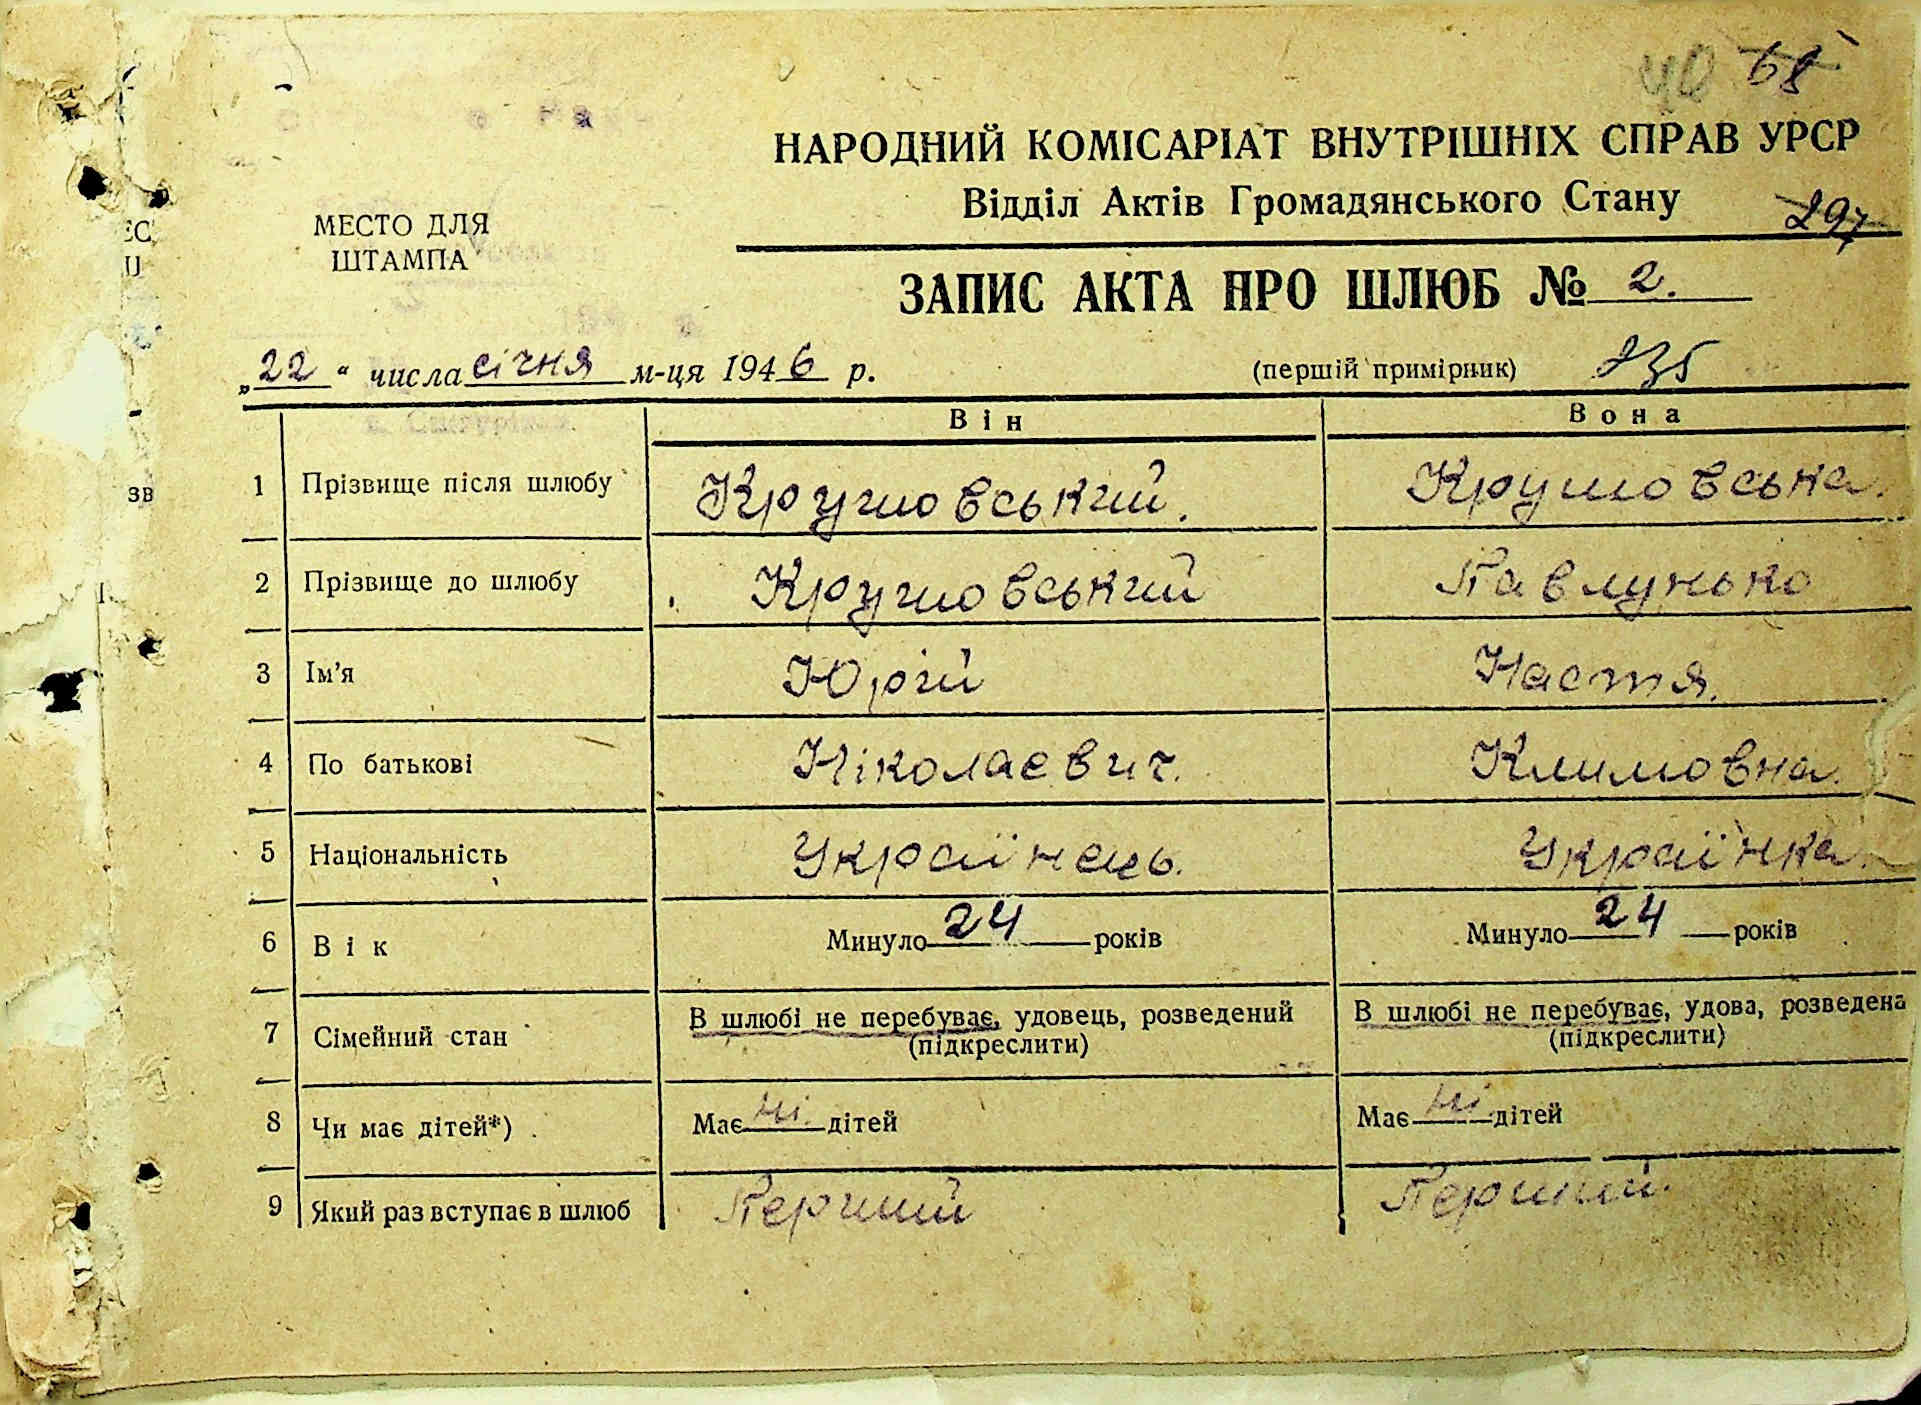 40 68
НАРОДНИЙ КОМІСАРІАТ ВНУТРІШНІХ СПРАВ УРСР
Відділ Актів Громадянського Стану
297
МЕСТО ДЛЯ
ШТАМПА
ЗАПИС АКТА ПРО ШЛЮБ № 2.
„22“ числа січня м-ця 1946 р.
(першій примірник)
Він Вона
1 Прізвище після шлюбу Крушовський. Крушовська.
2 Прізвище до шлюбу Крушовський Павлунько
3 Ім'я Юрій Настя.
4 По батькові Ніколаєвич. Климовна.
5 Національність Українець. Українка.
6 Вік Минуло 24 років Минуло 24 років
7 Сімейний стан В шлюбі не перебуває, удовець, розведений (підкреслити) В шлюбі не перебуває, удова, розведена (підкреслити)
8 Чи має дітей*) Має ні дітей Має ні дітей
9 Який раз вступає в шлюб Перший Перший.